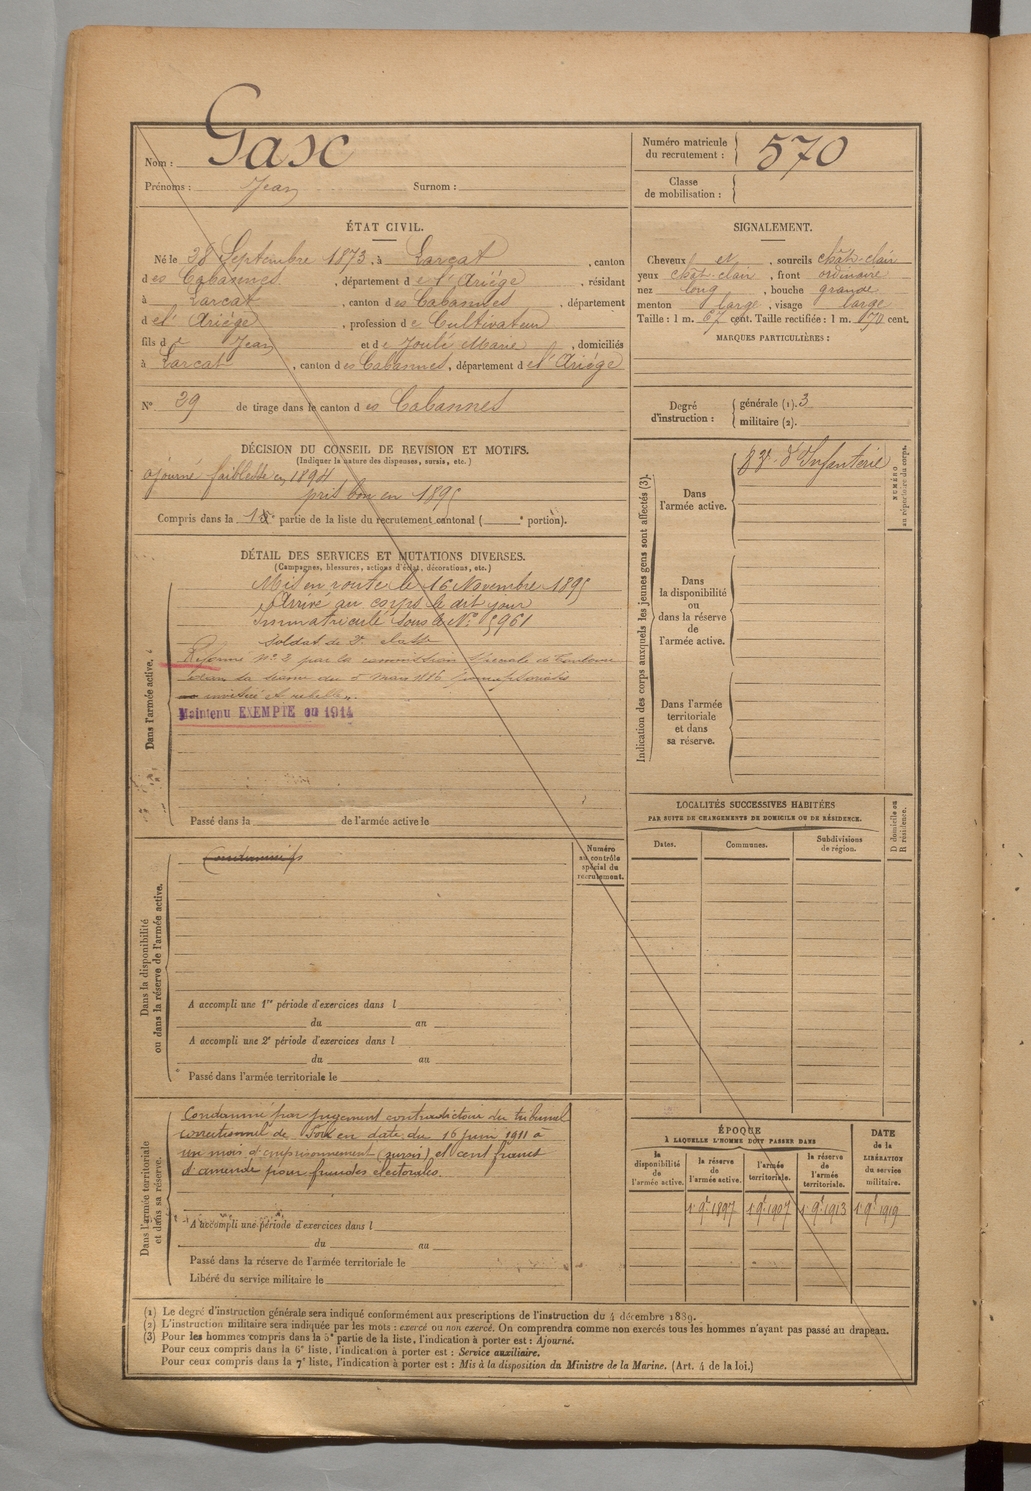 Nom : Gasc
Prénoms : Jean Surnom :
Numéro matricule
du recrutement : 570
Classe
de mobilisation :
ÉTAT CIVIL.
Né le 28 Septembre 1873, à Larcat, canton
des Cabannes, département de l'Ariége, résidant
à Larcat, canton des Cabannes, département
de l'Ariége, profession de Cultivateur
fils de Jean et de Joulé Marie, domiciliés
à Larcat, canton des Cabannes, département de l'Ariége
N° 39 de tirage dans le canton des Cabannes
SIGNALEMENT.
Cheveux et, sourcils chât-clair
yeux chât-clair, front ordinaire
nez long, bouche grande
menton large, visage large
Taille : 1 m. 67 cent. Taille rectifiée : 1 m. 670 cent.
MARQUES PARTICULIÈRES :
Degré
d'instruction :
générale (1). 3
militaire (2).
DÉCISION DU CONSEIL DE REVISION ET MOTIFS.
(Indiquer la nature des dispenses, sursis, etc.)
ajourné faiblesse en 1894
pris bon en 1895
Compris dans la 1e partie de la liste du recrutement cantonal ( e portion).
DÉTAIL DES SERVICES ET MUTATIONS DIVERSES.
(Campagnes, blessures, actions d'éclat, décorations, etc.)
Dans l'armée active.
Mis en route le 16 Novembre 1895
Arrivé au corps le dit jour
Immatriculé sous le N° 5961
Soldat de 2e classe
Réformé N° 2 par la commission spéciale de Toulouse
dans sa séance du 5 mars 1896 pour psoriasis
invétéré et rebelle.
Maintenu EXEMPTÉ en 1914
Passé dans la de l'armée active le
Indication des corps auxquels les jeunes gens sont affectés (3).
Dans
l'armée active.
d'Infanterie
NUMÉRO
au répertoire du corps.
Dans
la disponibilité
ou
dans la réserve
de
l'armée active.
Dans l'armée
territoriale
et dans
sa réserve.
LOCALITÉS SUCCESSIVES HABITÉES
PAR SUITE DE CHANGEMENTS DE DOMICILE OU DE RÉSIDENCE.
Dates.
Communes.
Subdivisions
de région.
D domicile ou
R résidence.
Dans la disponibilité
ou dans la réserve de l'armée active.
Numéro
au contrôle
spécial du
recrutement.
A accompli une 1re période d'exercices dans l
du au
A accompli une 2e période d'exercices dans l
du au
Passé dans l'armée territoriale le
Dans l'armée territoriale
et dans sa réserve.
Condamné par jugement contradictoire du tribunal
correctionnel de Foix en date du 16 juin 1911 à
un mois d'emprisonnement (sursis) et cent francs
d'amende pour fraudes électorales.
A accompli une période d'exercices dans l
du au
Passé dans la réserve de l'armée territoriale le
Libéré du service militaire le
ÉPOQUE
À LAQUELLE L'HOMME DOIT PASSER DANS
DATE
de la
LIBÉRATION
du service
militaire.
la
disponibilité
de
l'armée active.
la réserve
de
l'armée active.
l'armée
territoriale.
la réserve
de
l'armée
territoriale.
1er 9bre 1897
1er 9bre 1907
1er 9bre 1913
1er 9bre 1919
(1) Le degré d'instruction générale sera indiqué conformément aux prescriptions de l'instruction du 4 décembre 1889.
(2) L'instruction militaire sera indiquée par les mots : exercé ou non exercé. On comprendra comme non exercés tous les hommes n'ayant pas passé au drapeau.
(3) Pour les hommes compris dans la 5e partie de la liste, l'indication à porter est : Ajourné.
Pour ceux compris dans la 6e liste, l'indication à porter est : Service auxiliaire.
Pour ceux compris dans la 7e liste, l'indication à porter est : Mis à la disposition du Ministre de la Marine. (Art. 4 de la loi.)